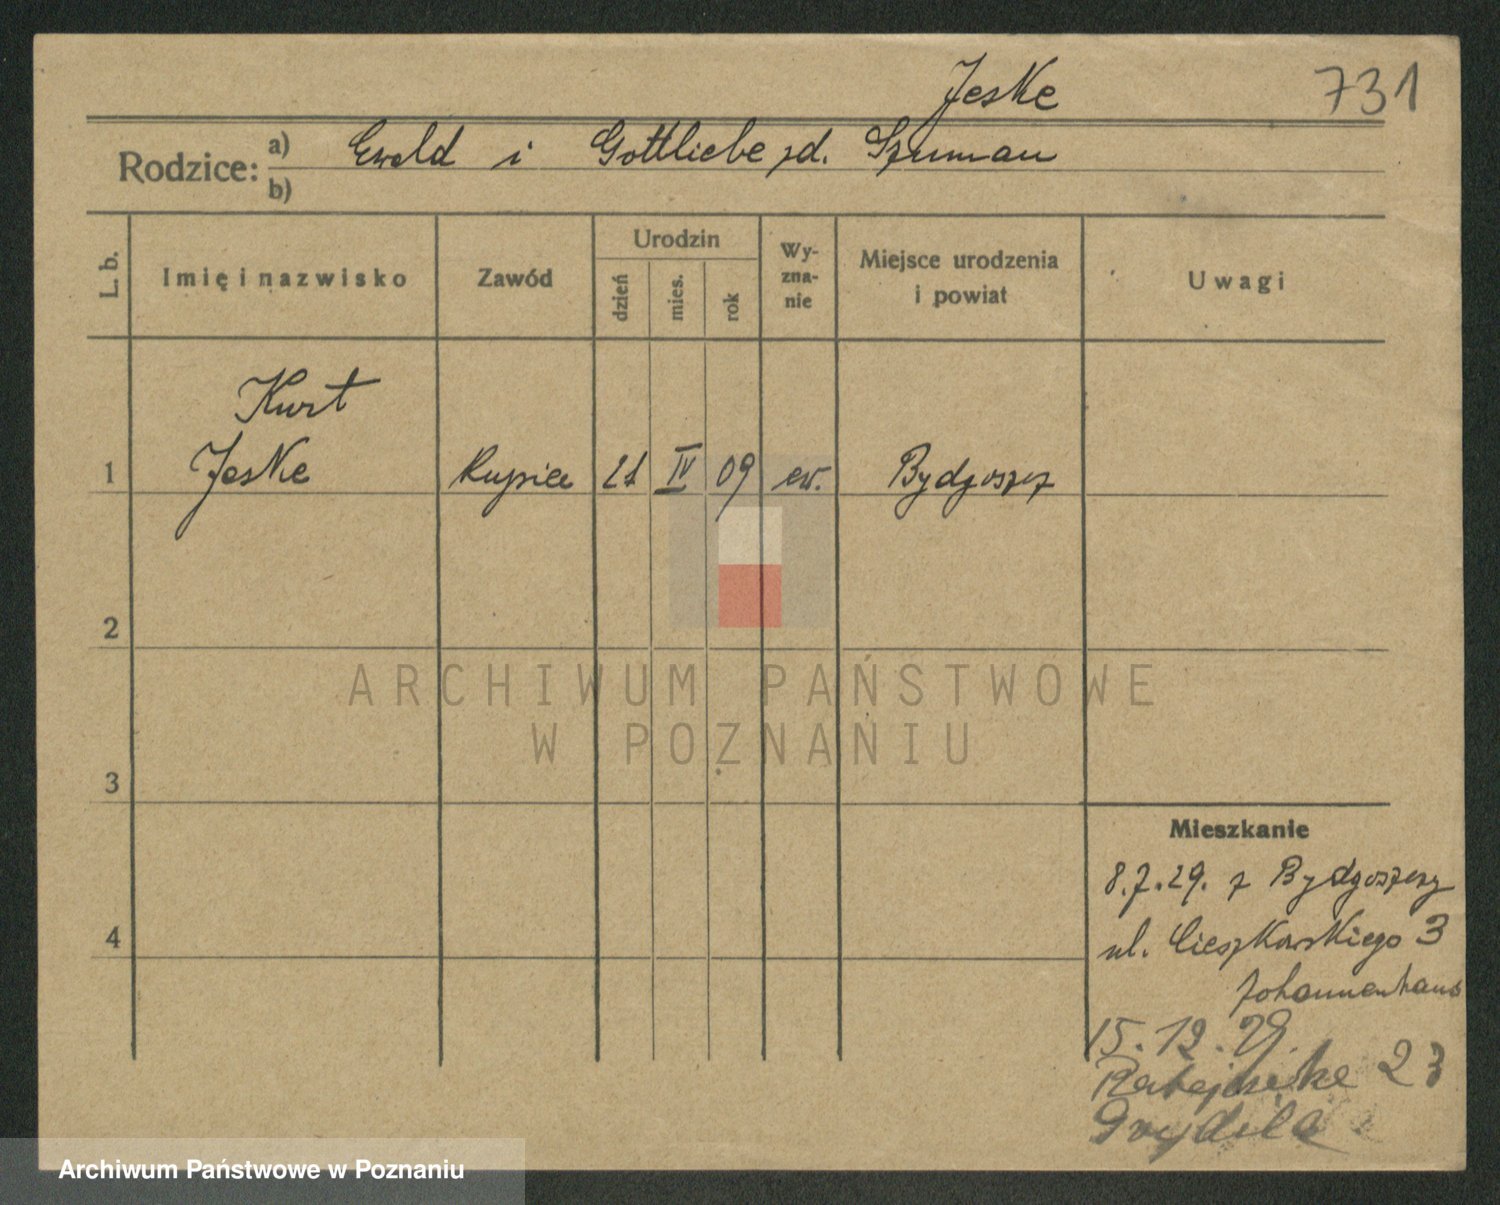 Jeske 731
Rodzice: a) Ewald i Gottliebe zd. Szuman
b)
L. b. Imię i nazwisko Zawód Urodzin dzień mies. rok Wy-zna-nie Miejsce urodzenia i powiat Uwagi
Kurt
1 Jeske Kupiec 21 IV 09 ew. Bydgoszcz
2
ARCHIWUM PAŃSTWOWE
W POZNANIU
3
Mieszkanie
8.7.29. z Bydgoszczy
4 ul. Cieszkowskiego 3
Johannenhaus
15.12.29.
Ratajskie 23
Archiwum Państwowe w Poznaniu